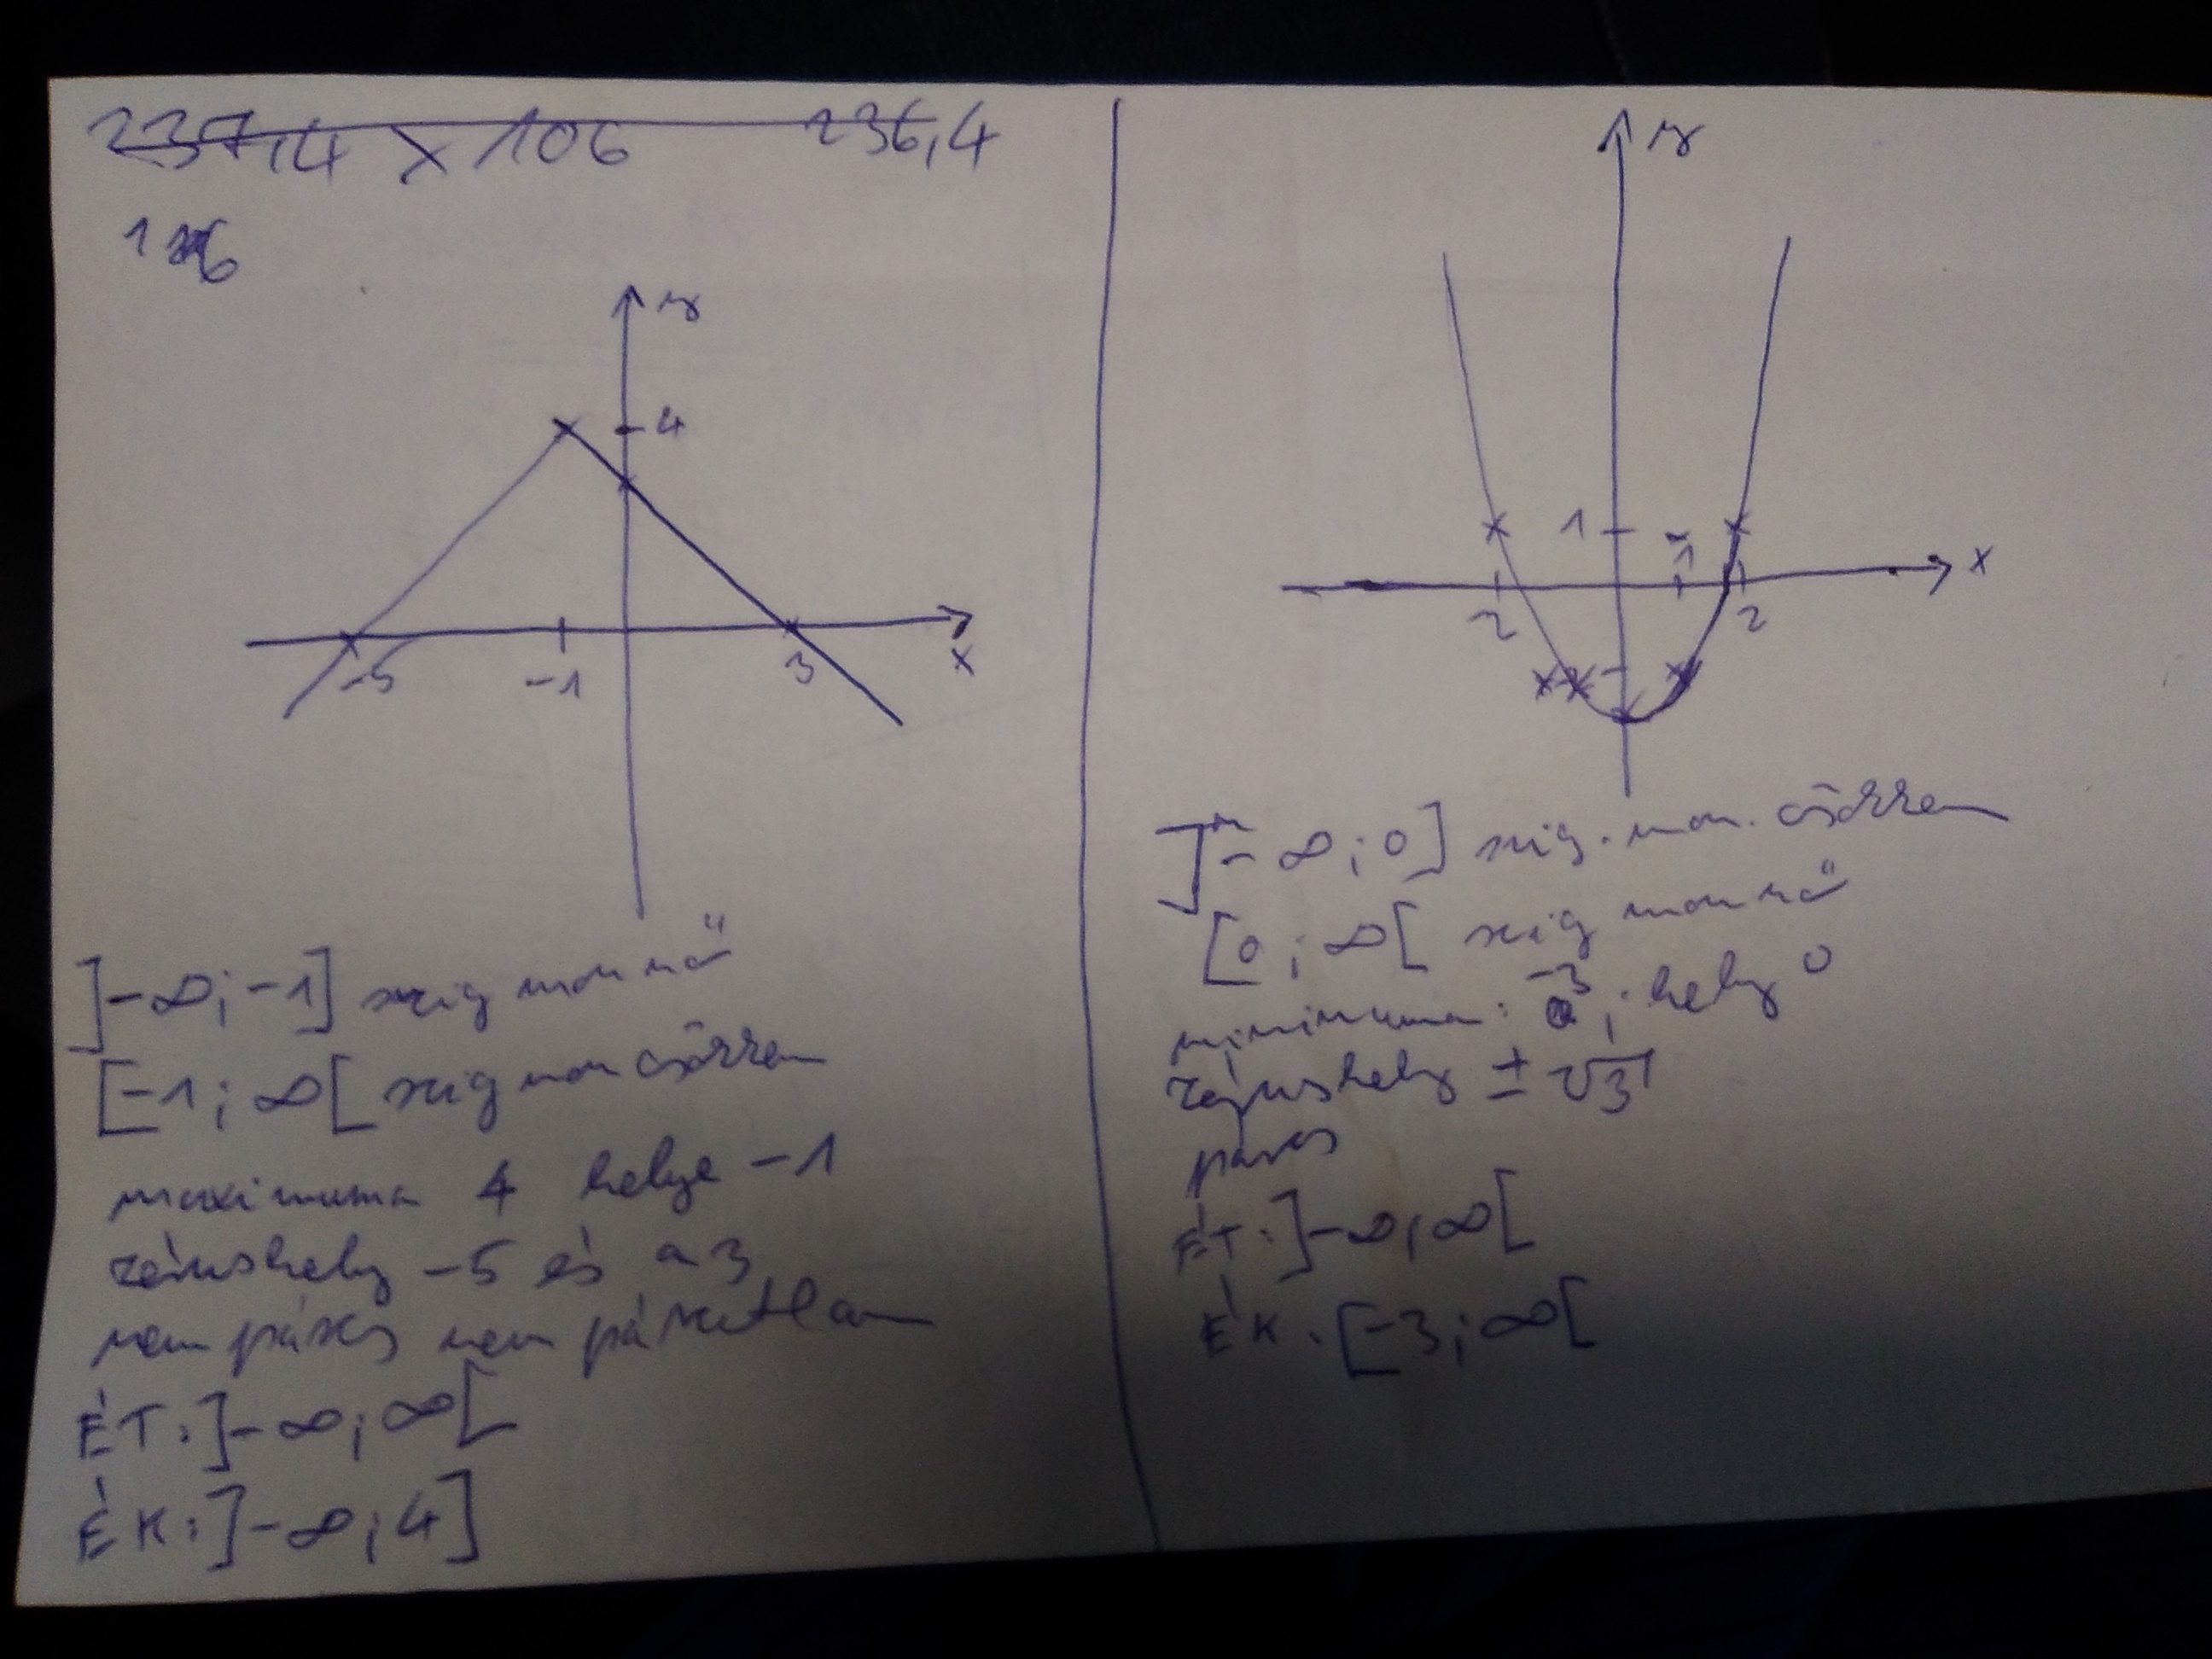 237,4 × 106 236,4
y
4
-5 -1 3 x
]-∞; -1] szig mon nő
[-1; ∞[ szig mon csökken
maximuma 4 helye -1
zérushely -5 és a 3
nem páros nem páratlan
ÉT: ]-∞; ∞[
ÉK: ]-∞; 4]
y
1 1 x
2 2
]-∞; 0] szig. mon. csökken
[0; ∞[ szig mon nő
minimuma: -3; hely 0
zérushely ± √3
páros
ÉT: ]-∞; ∞[
ÉK: [-3; ∞[